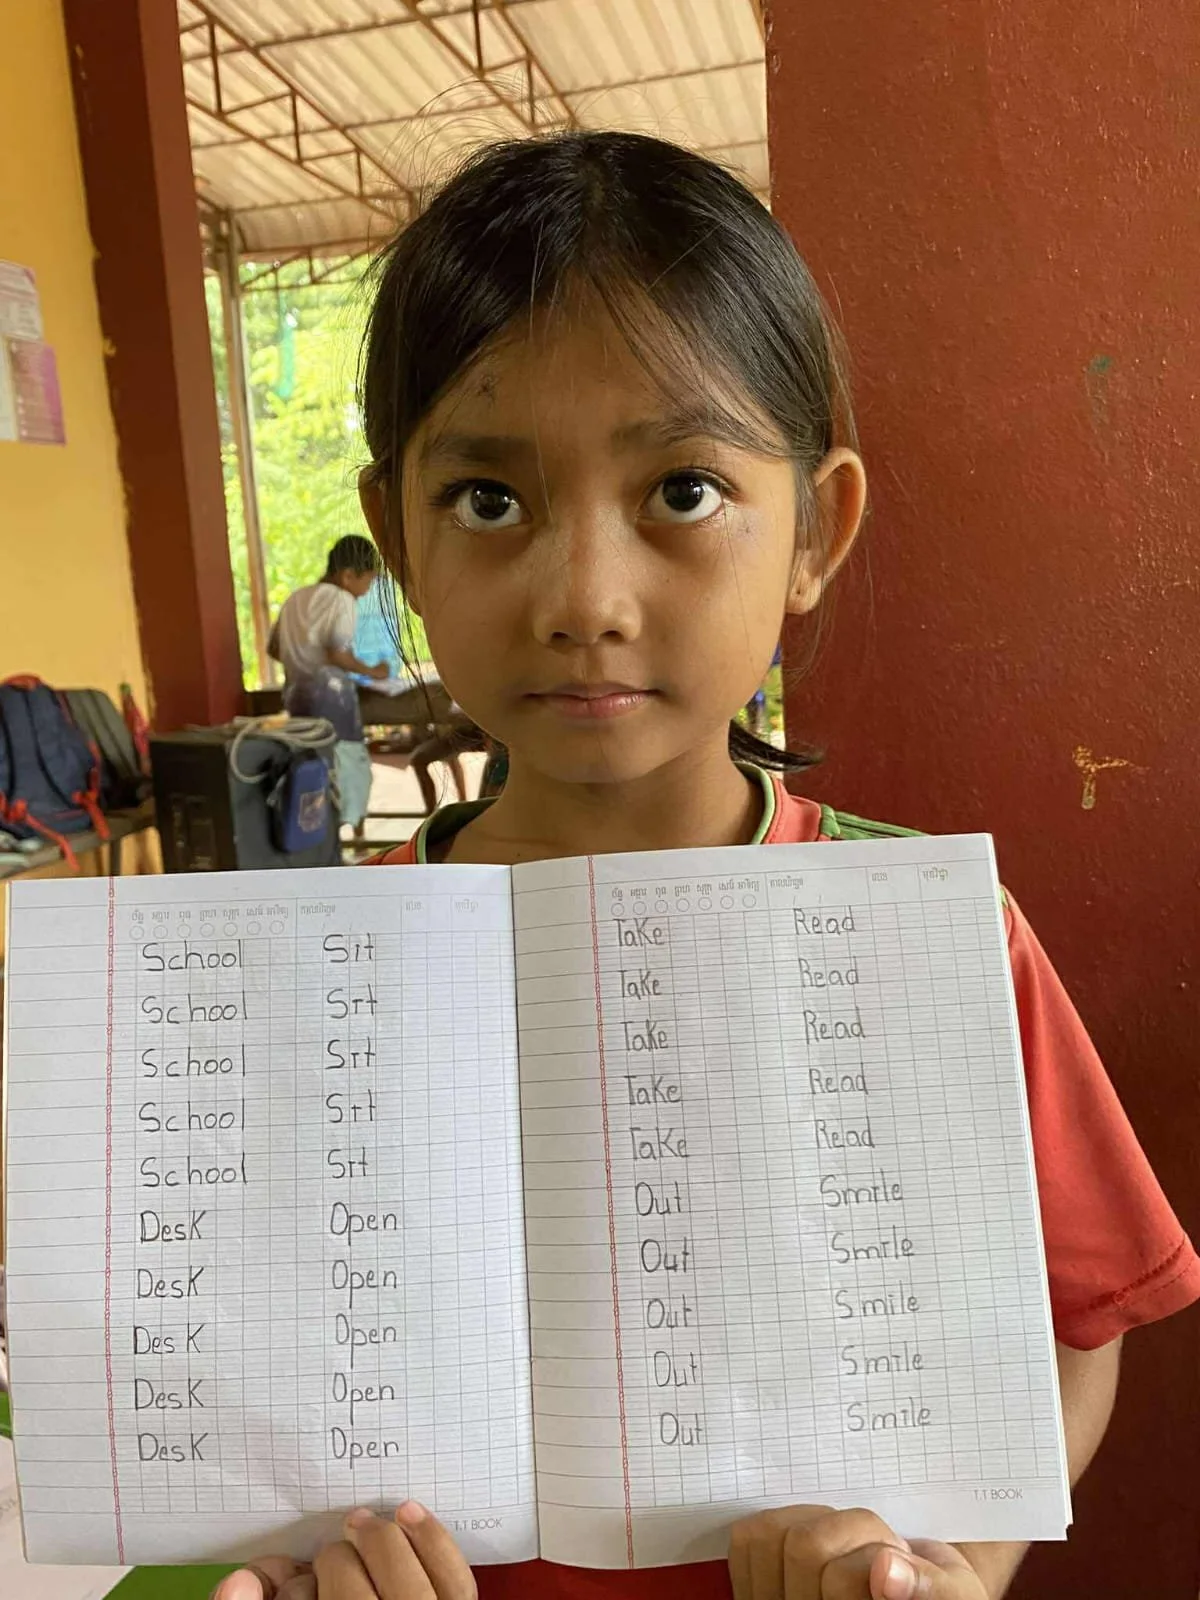 ច័ន្ទ អង្គារ ពុធ ព្រហ សុក្រ សៅរ៍ អាទិត្យ
School Sit
School Sit
School Sit
School Sit
School Sit
Desk Open
Desk Open
Desk Open
Desk Open
Desk Open
T.T BOOK
ច័ន្ទ អង្គារ ពុធ ព្រហ សុក្រ សៅរ៍ អាទិត្យ
Take Read
Take Read
Take Read
Take Read
Take Read
Out Smile
Out Smile
Out Smile
Out Smile
Out Smile
T.T BOOK